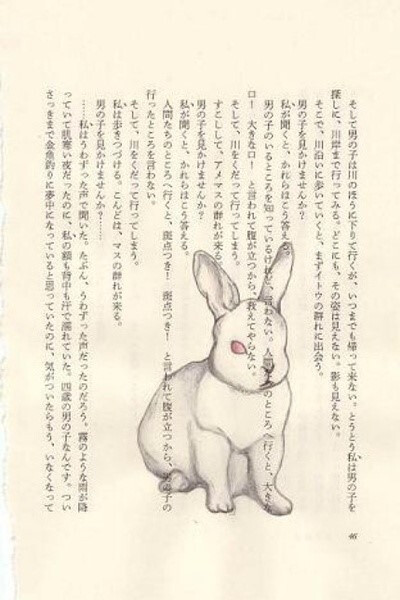 そして男の子は川のほうに下りて行くが、いつまでも帰って来ない。とうとう私は男の子を
探しに、川岸まで行ってみる。どこにも、その姿は見えない。影も見えない。
そこで、川沿いに歩いていくと、まずイトウの群れに出会う。
男の子を見かけませんか?
私が聞くと、かれらはこう答える。
男の子のいるところを知っているけれど、言わない。人間たちのところへ行くと、大きな
口! 大きな口! と言われて腹が立つから、教えてやらない。
そして、川をくだって行ってしまう。
すこしして、アメマスの群れが来る。
男の子を見かけませんか?
私が聞くと、かれらはこう答える。
人間たちのところへ行くと、斑点つき! 斑点つき! と言われて腹が立つから、男の子の
行ったところを言わない。
そして、川をくだって行ってしまう。
私は歩きつづける。こんどは、マスの群れが来る。
男の子を見かけませんか?……
……私はうわずった声で聞いた。たぶん、うわずった声だったのだろう。霧のような雨が降
っていて肌寒い夜だったのに、私の額も背中も汗で濡れていた。四歳の男の子なんです。つい
さっきまで金魚釣りに夢中になっていると思っていたのに、気がついたらもう、いなくなって
46